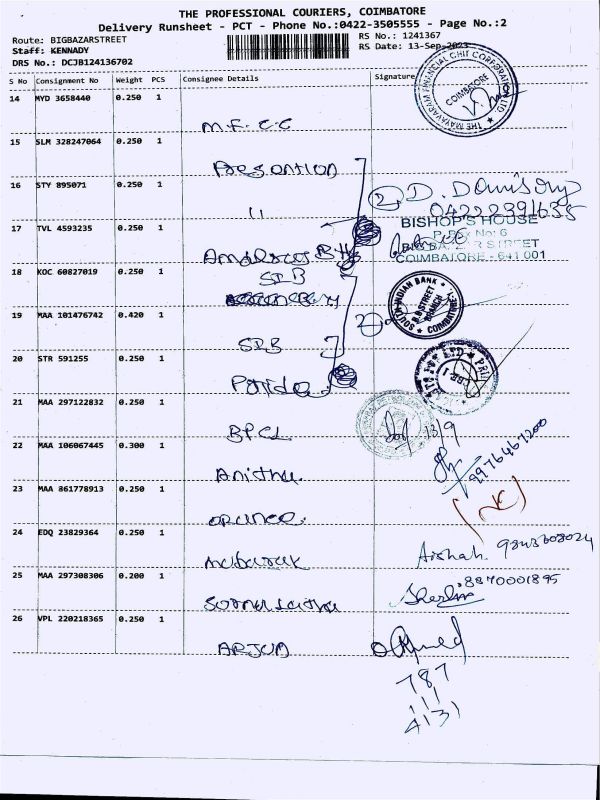 THE PROFESSIONAL COURIERS, COIMBATORE
Delivery Runsheet - PCT - Phone No.:0422-3505555 - Page No.:2
Route: BIGBAZARSTREET
RS No.: 1241367
Staff: KENNADY
RS Date: 13-Sep-2023
DRS No.: DCJB124136702
S No Consignment No Weight PCS Consignee Details Signature
14 MYD 3658440 0.250 1
M.F.C.C
THE MAYAVARAM FINANCIAL CHIT CORPORATION LTD
COIMBATORE
15 SLM 328247064 0.250 1
16 STY 895071 0.250 1
11
2 D.
04222391635
17 TVL 4593235 0.250 1
BISHOP'S HOUSE
P. Box No: 6
STREET
COIMBATORE - 641 001
18 KOC 60827019 0.250 1
SIB
SOUTH INDIAN BANK
B.B STREET
BRANCH
COIMBATORE
19 MAA 101476742 0.420 1
SIB
2
20 STR 591255 0.250 1
21 MAA 297122832 0.250 1
BPCL
13/9
22 MAA 106067445 0.300 1
Anitha.
9976467200
23 MAA 861778913 0.250 1
orance.
24 EDQ 23829364 0.250 1
Mubarak
Aishah. 9843608024
25 MAA 297308306 0.200 1
8870001895
26 VPL 220218365 0.250 1
ARJUN
787
111
4131